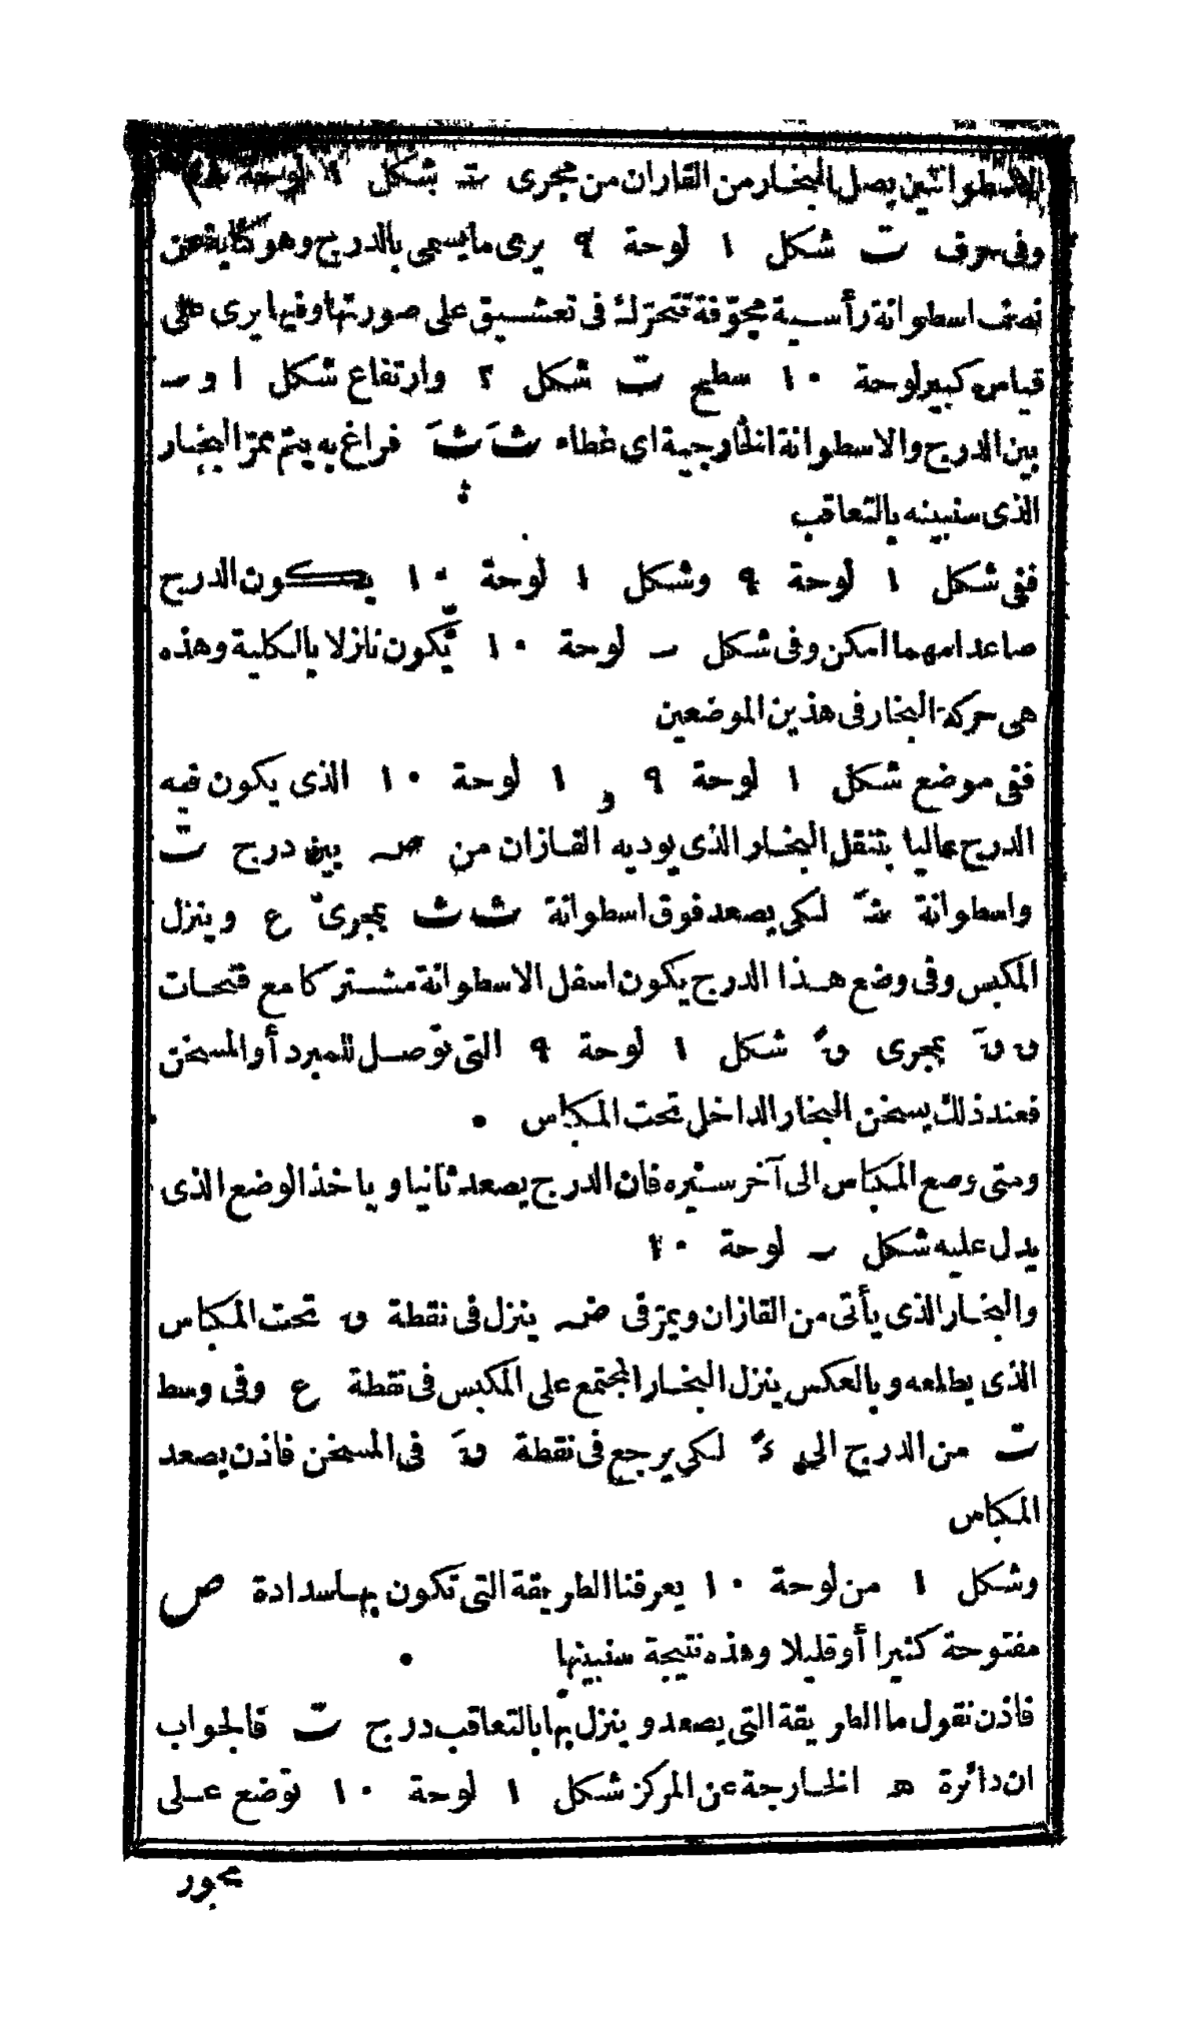 الاسطوانتين يصل البخار من القازان من مجرى ث شكل ٢ لوحة
وفى حرف ت شكل ١ لوحة ٩ يرى ما يسمى بالدرج وهو كناية عن
نصف اسطوانة رأسية مجوّفة تتحرّك فى تعشيق على صورتها وفيها يرى على
قياس كبير لوحة ١٠ سطح ت شكل ٢ وارتفاع شكل ١ و ـ
بين الدرج والاسطوانة الخارجية اى غطاء ثَ ثَ فراغ به يتم ممرّ البخار
الذى سنبينه بالتعاقب
ففى شكل ١ لوحة ٩ وشكل ١ لوحة ١٠ يكون الدرج
صاعدا مهما امكن وفى شكل ـ لوحة ١٠ يكون نازلا بالكلية وهذه
هى حركة البخار فى هذين الموضعين
ففى موضع شكل ١ لوحة ٩ و ١ لوحة ١٠ الذى يكون فيه
الدرج عاليا ينتقل البخار الذى يوديه القازان من ضـ بين درج ت
واسطوانة ثَ لكى يصعد فوق اسطوانة ث ث بمجرى ع وينزل
المكبس وفى وضع هذا الدرج يكون اسفل الاسطوانة مشتركا مع فتحات
ق قَ بمجرى قً شكل ١ لوحة ٩ التى توصل للمبرد أو المسخن
فعند ذلك يسخن البخار الداخل تحت المكباس
ومتى وصع المكباس الى آخر سيره فان الدرج يصعد ثانيا وياخذ الوضع الذى
يدل عليه شكل ـ لوحة ١٠
والبخار الذى يأتى من القازان ويمرّ فى ضـ ينزل فى نقطة ق تحت المكباس
الذى يطلعه وبالعكس ينزل البخار المجتمع على المكبس فى نقطة ع وفى وسط
ت من الدرج الى ءً لكى يرجع فى نقطة قَ فى المسخن فاذن يصعد
المكباس
وشكل ١ من لوحة ١٠ يعرفنا الطريقة التى تكون بها سدادة ص
مفتوحة كثيرا أو قليلا وهذه نتيجة سنبينها
فاذن نقول ما الطريقة التى يصعد وينزل بها بالتعاقب درج ت فالجواب
ان دائرة هـ الخارجة عن المركز شكل ١ لوحة ١٠ توضع على
محور